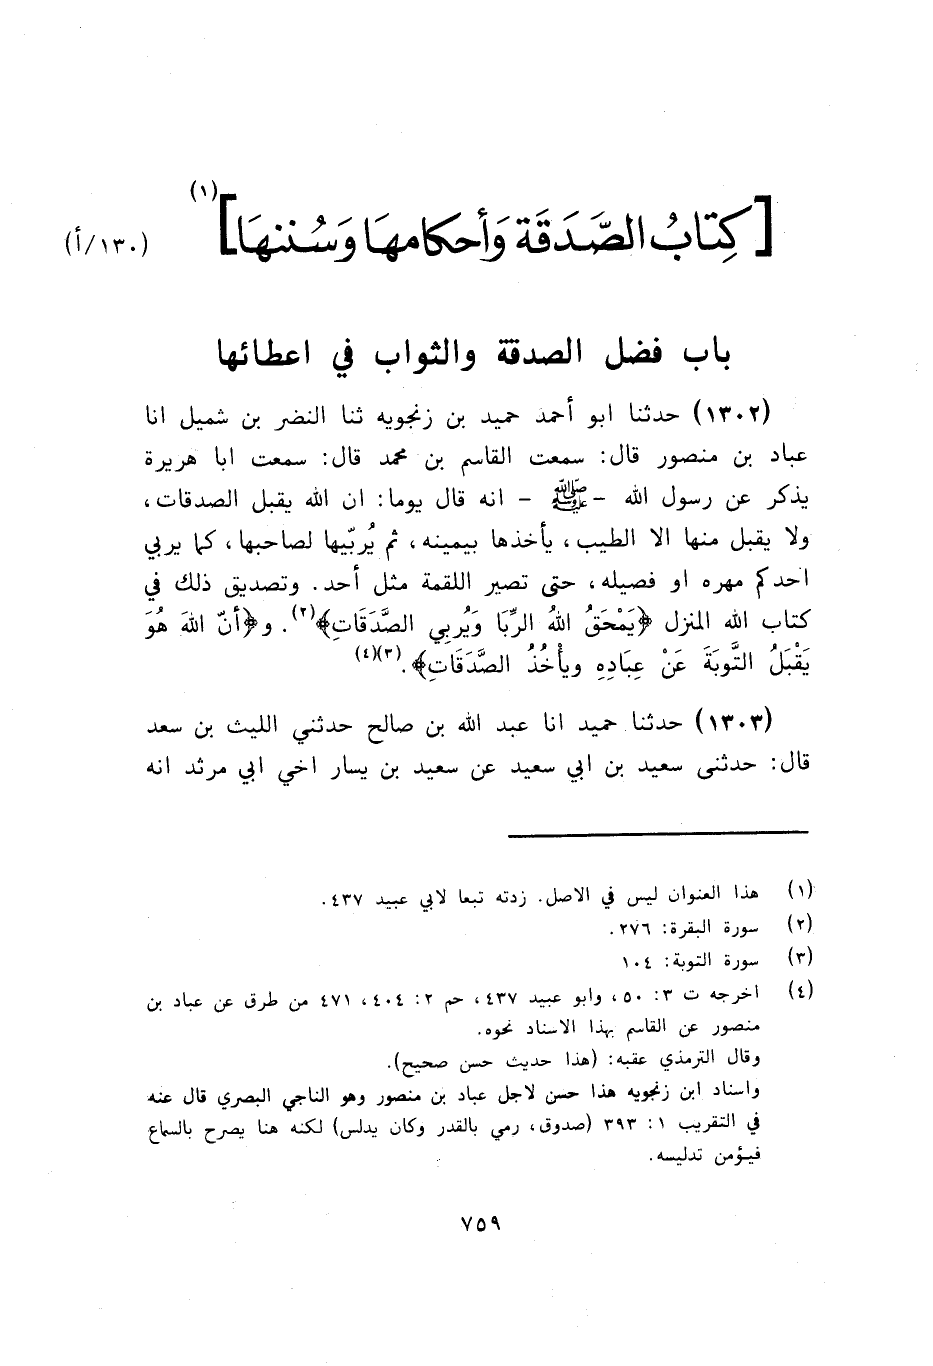 [كِتَابُ الصَّدَقَة وَأحكامهَا وَسُننهَا] (١) (١٣٠/أ)
باب فضل الصدقة والثواب في اعطائها
(١٣٠٢) حدثنا ابو أحمد حميد بن زنجويه ثنا النضر بن شميل انا
عباد بن منصور قال: سمعت القاسم بن محمد قال: سمعت ابا هريرة
يذكر عن رسول الله - ﷺ - انه قال يوما: ان الله يقبل الصدقات،
ولا يقبل منها الا الطيب، يأخذها بيمينه، ثم يُربّيها لصاحبها، كما يربي
احدكم مهره او فصيله، حتى تصير اللقمة مثل أحد. وتصديق ذلك في
كتاب الله المنزل ﴿يَمْحَقُ اللهُ الرِّبَا وَيُربي الصَّدَقَاتِ﴾(٢). و﴿أنّ اللهَ هُوَ
يَقْبَلُ التَّوبَةَ عَنْ عِبَادِهِ ويأْخُذُ الصَّدَقَاتِ﴾.(٣)(٤)
(١٣٠٣) حدثنا حميد انا عبد الله بن صالح حدثني الليث بن سعد
قال: حدثنى سعيد بن ابي سعيد عن سعيد بن يسار اخي ابي مرثد انه
(١) هذا العنوان ليس في الاصل. زدته تبعا لابي عبيد ٤٣٧.
(٢) سورة البقرة: ٢٧٦.
(٣) سورة التوبة: ١٠٤
(٤) اخرجه ت ٣: ٥٠، وابو عبيد ٤٣٧، حم ٢: ٤٠٤، ٤٧١ من طرق عن عباد بن
منصور عن القاسم بهذا الاسناد نحوه.
وقال الترمذي عقبه: (هذا حديث حسن صحيح).
واسناد ابن زنجويه هذا حسن لاجل عباد بن منصور وهو الناجي البصري قال عنه
في التقريب ١: ٣٩٣ (صدوق، رمي بالقدر وكان يدلس) لكنه هنا يصرح بالسماع
فيؤمن تدليسه.
٧٥٩